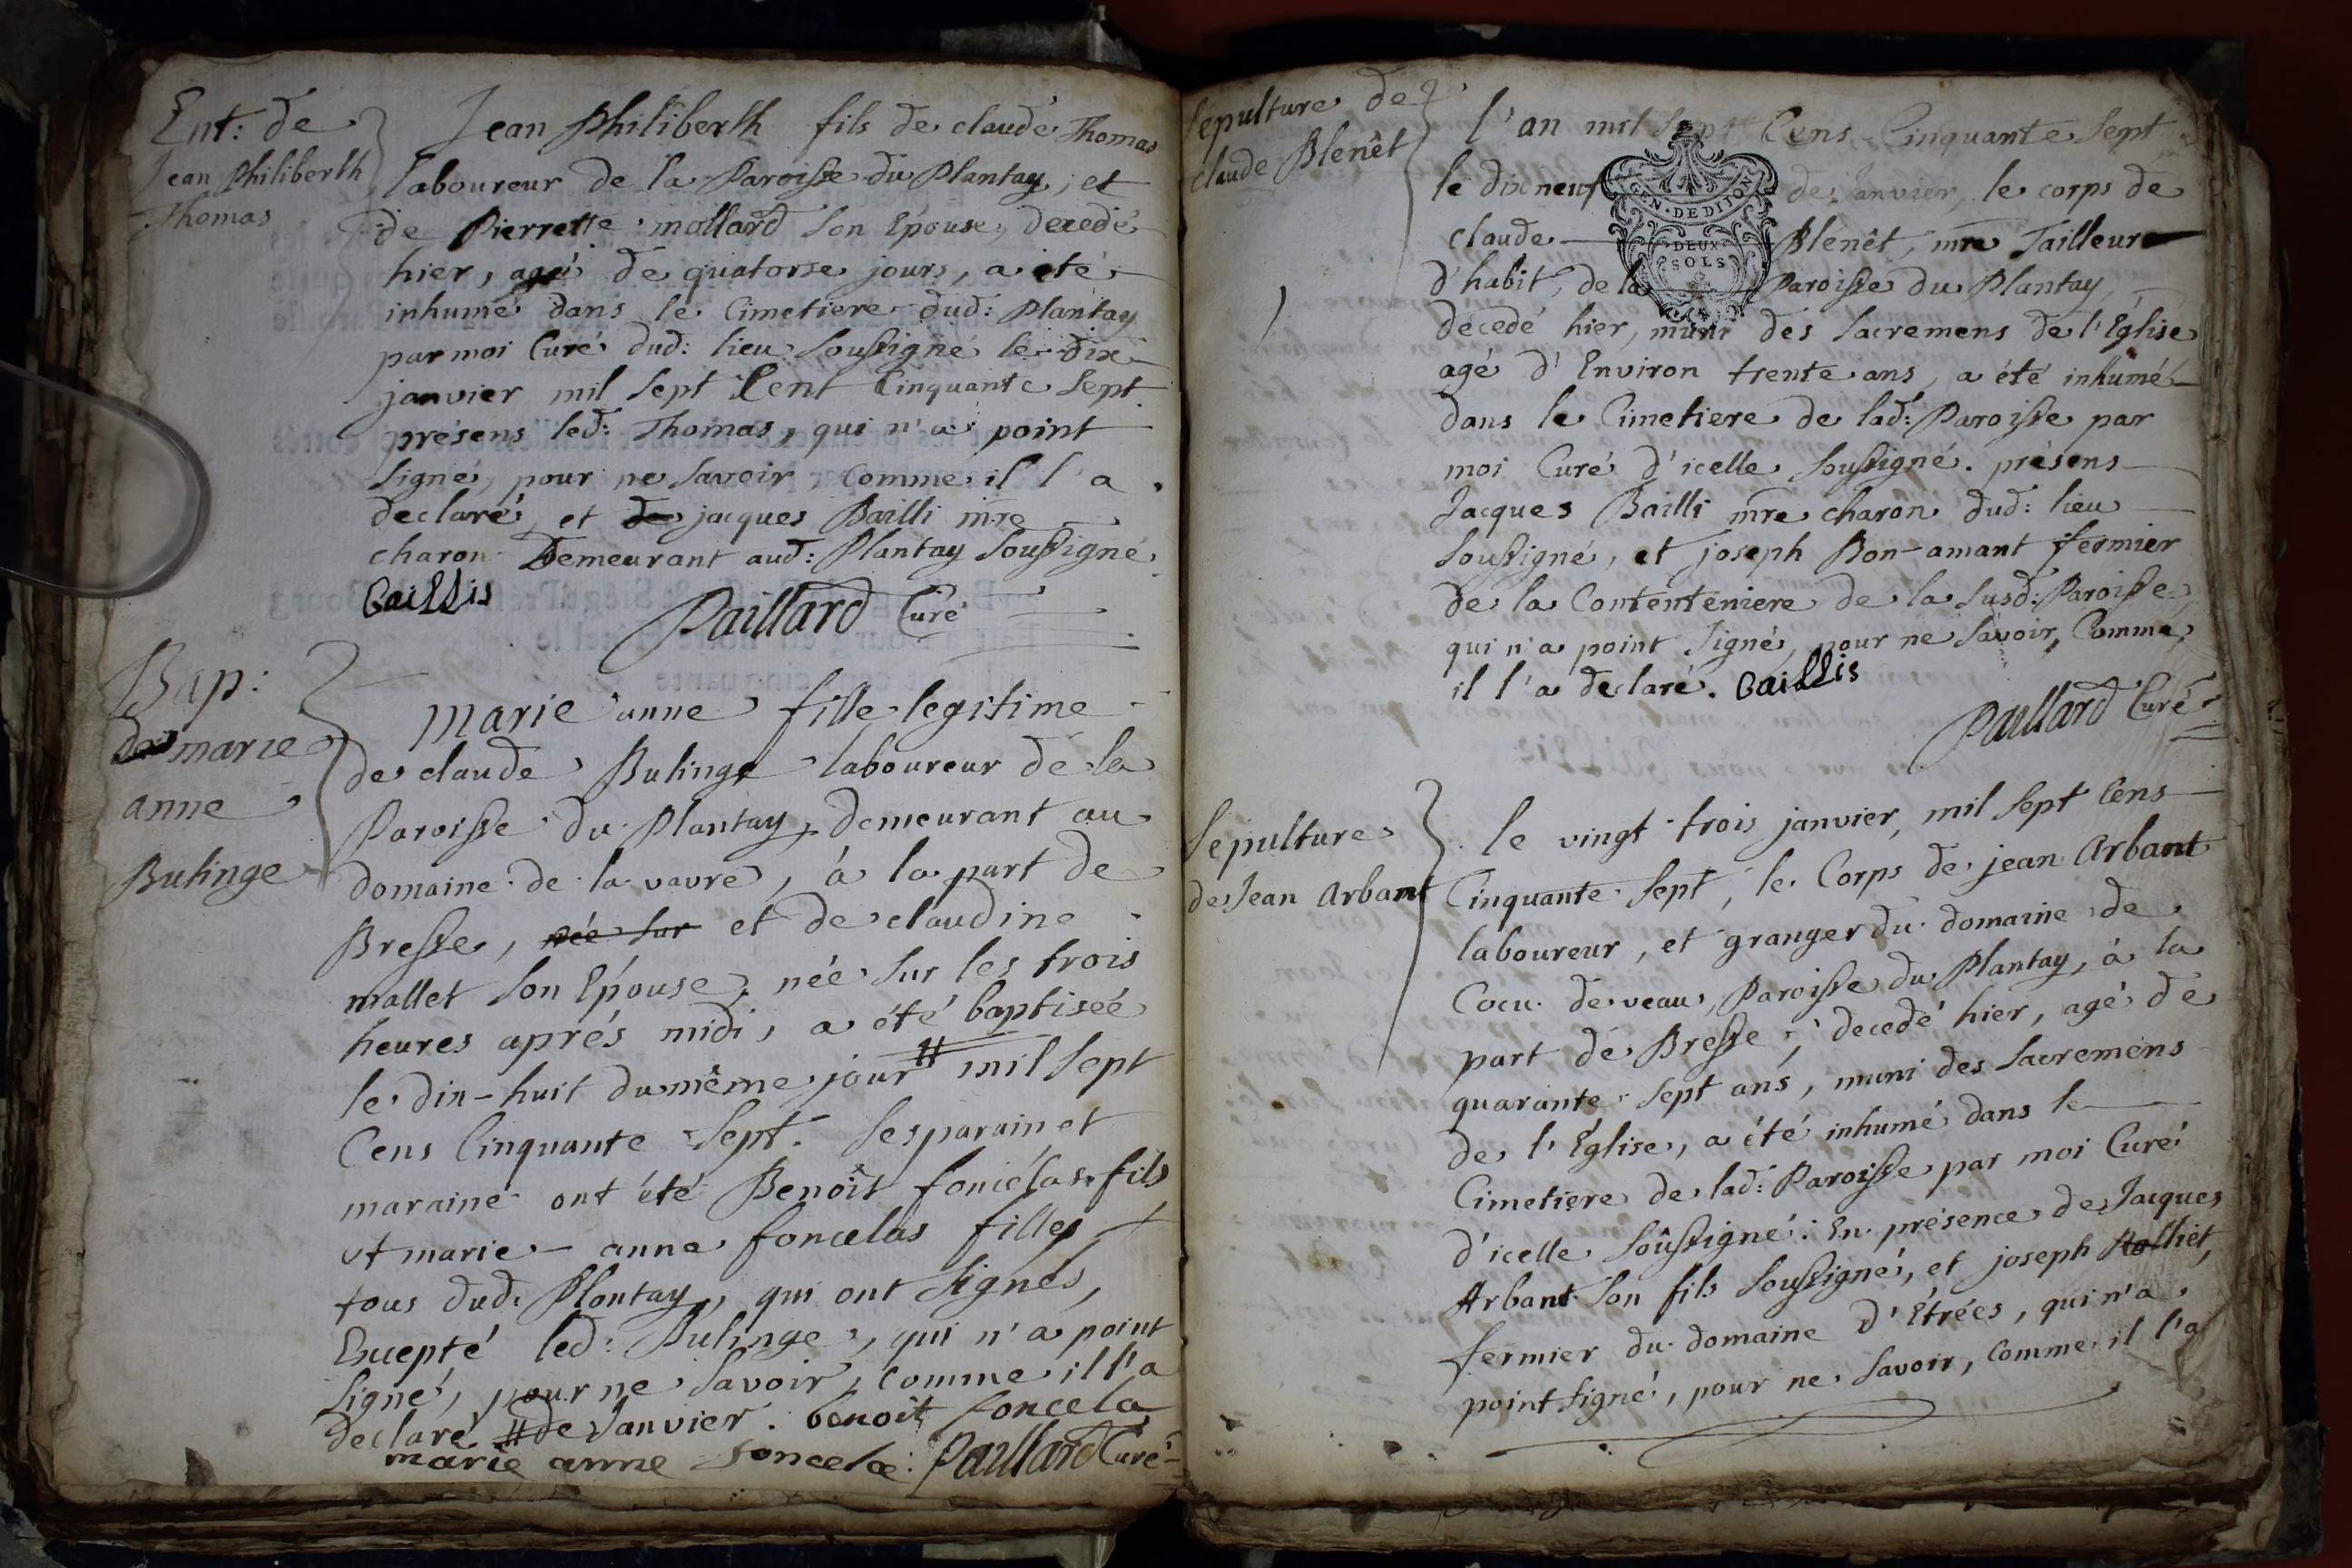 Ent: de
Jean Philiberth
Thomas
Jean Philiberth fils de claude Thomas
laboureur de la Paroisse du Plantay, et
de Pierrette mallard son Epouse, decedé
hier, agé de quatorse jours, a eté
inhumé dans le Cimetiere dud: Plantay
par moi Curé dud: lieu soussigné le dix
janvier mil sept Cent Cinquante sept
présens led: Thomas, qui n'a point
signé, pour ne savoir, comme il l'a
declaré, et de jacques Bailli mre
charon Demeurant aud: Plantay soussigné
Baillis
Paillard Curé
Bap:
de marie
anne
Bulinge
Marie anne fille legitime
de claude Bulinge laboureur de la
Paroisse du Plantay, demeurant au
domaine de la vavre, à la part de
Bresse, née sur et de claudine
mallet son Epouse, née sur les trois
heures aprés midi, a été baptiseé
le dix-huit du même jour # mil sept
Cens Cinquante sept. ses parain et
maraine ont été Benoît foncélas fils
et marie-anne foncelas fille
tous dud: Plantay, qui ont signés,
Excepté led: Bulinge, qui n'a point
signé, pour ne savoir, comme il l'a
declaré # de Janvier. benoit foncela
marie anne foncela: Paillard Curé
Sepulture de
claude Blenêt
l'an mil sept Cens Cinquante sept
le dix neuf de Janvier, le corps de
GEN. DE DIJON
claude Blénêt, mre Tailleur
DEUX
SOLS
d'habit, de la Paroisse du Plantay,
décedé hier, muni des sacremens de l'Eglise
agé d'Environ trente ans, a été inhumé
dans le Cimetiere de lad: Paroisse par
moi Curé d'icelle soussigné. présens
Jacques Bailli mre charon dud: lieu
soussigné, et joseph Bon-amant fermier
de la Contenteniere de la susd: Paroisse
qui n'a point signé, pour ne savoir, Comme
il l'a declaré. Baillis
Paillard Curé
Sepulture
de Jean Arbant
le vingt trois janvier, mil sept Cens
Cinquante sept, le Corps de jean Arbant
laboureur, et granger du domaine de
Cocu de veau, Paroisse du Plantay, à la
part de Bresse, decedé hier, agé de
quarante sept ans, muni des sacremens
de l'Eglise, a été inhumé dans le
Cimetiere de lad: Paroisse par moi Curé
d'icelle soûssigné: En présence de Jacques
Arbant son fils soussigné, et joseph
fermier du domaine d'Etrées, qui n'a
point signé, pour ne savoir, Comme il l'a